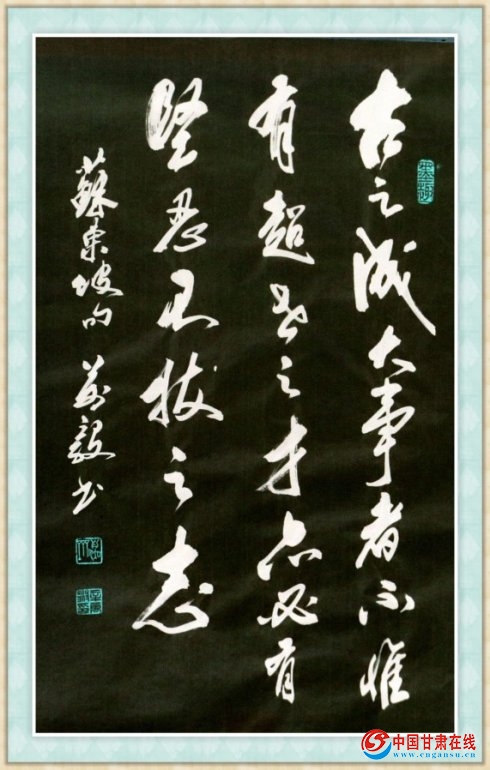 古之成大事者不惟
有超世之才亦必有
坚忍不拔之志
苏东坡句 万毅书
中国甘肃在线
www.cngansu.cn